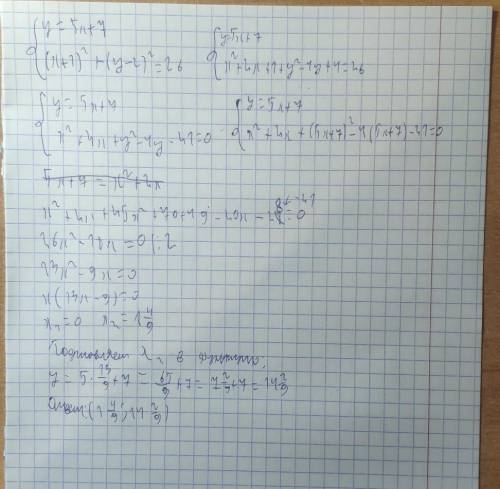 y = 5x+7
(x+1)²+(y-2)²=26
y=5x+7
x²+2x+1+y²-4y+4=26
y = 5x+7
x²+2x+y²-4y-21=0
y=5x+7
x²+2x+(5x+7)²-4(5x+7)-21=0
5x+7 = x²+2x
26x²-18x=0 |:2
13x²-9x=0
x(13x-9)=0
x₁=0 x₂=1 4/9
Подставляем x₂ в
y = 5·13/9+7 = 65/9+7 = 7 2/9+7 = 14 2/9
Ответ: (1 4/9; 14 2/9)